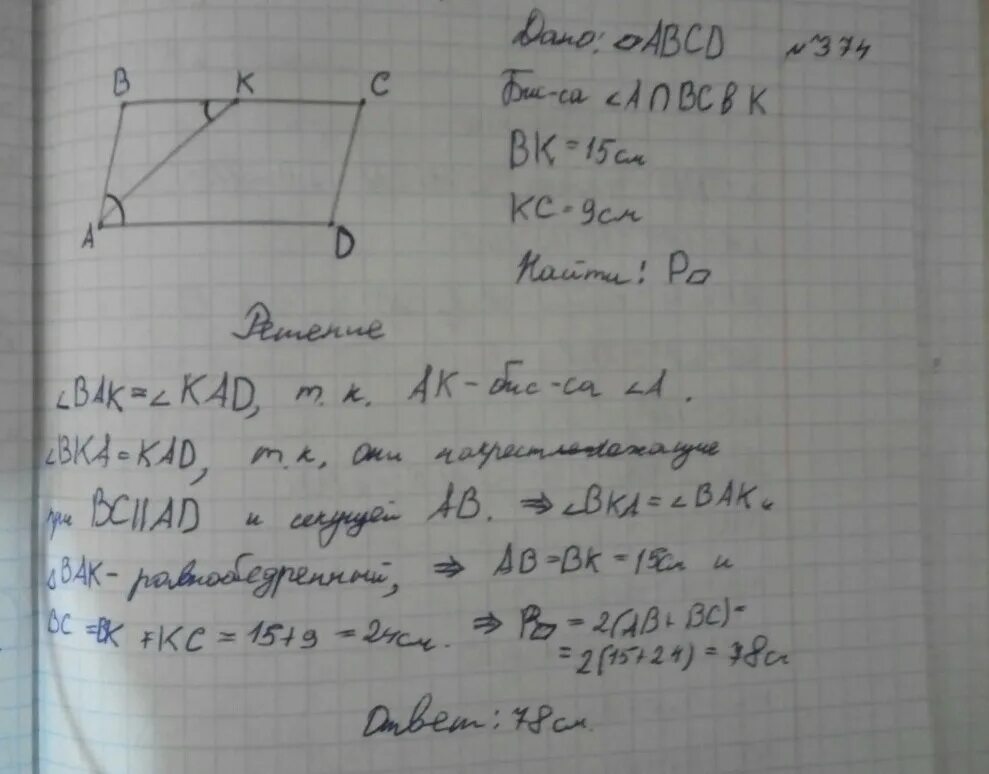 Дано: ▱ABCD №374
Бис-са ∠A ∩ BC в K
BK = 15 см
KC = 9 см
Найти: P▱
B K C
A D
Решение
∠BAK = ∠KAD, т. к. AK – бис-са ∠A.
∠BKA = KAD, т. к, они накрестлежащие
при BC || AD и секущей AB. ⇒ ∠BKA = ∠BAK и
△BAK – равнобедренный, ⇒ AB = BK = 15см и
BC = BK + KC = 15 + 9 = 24 см. ⇒ P▱ = 2(AB + BC) =
= 2(15 + 24) = 78 см
Ответ: 78 см.